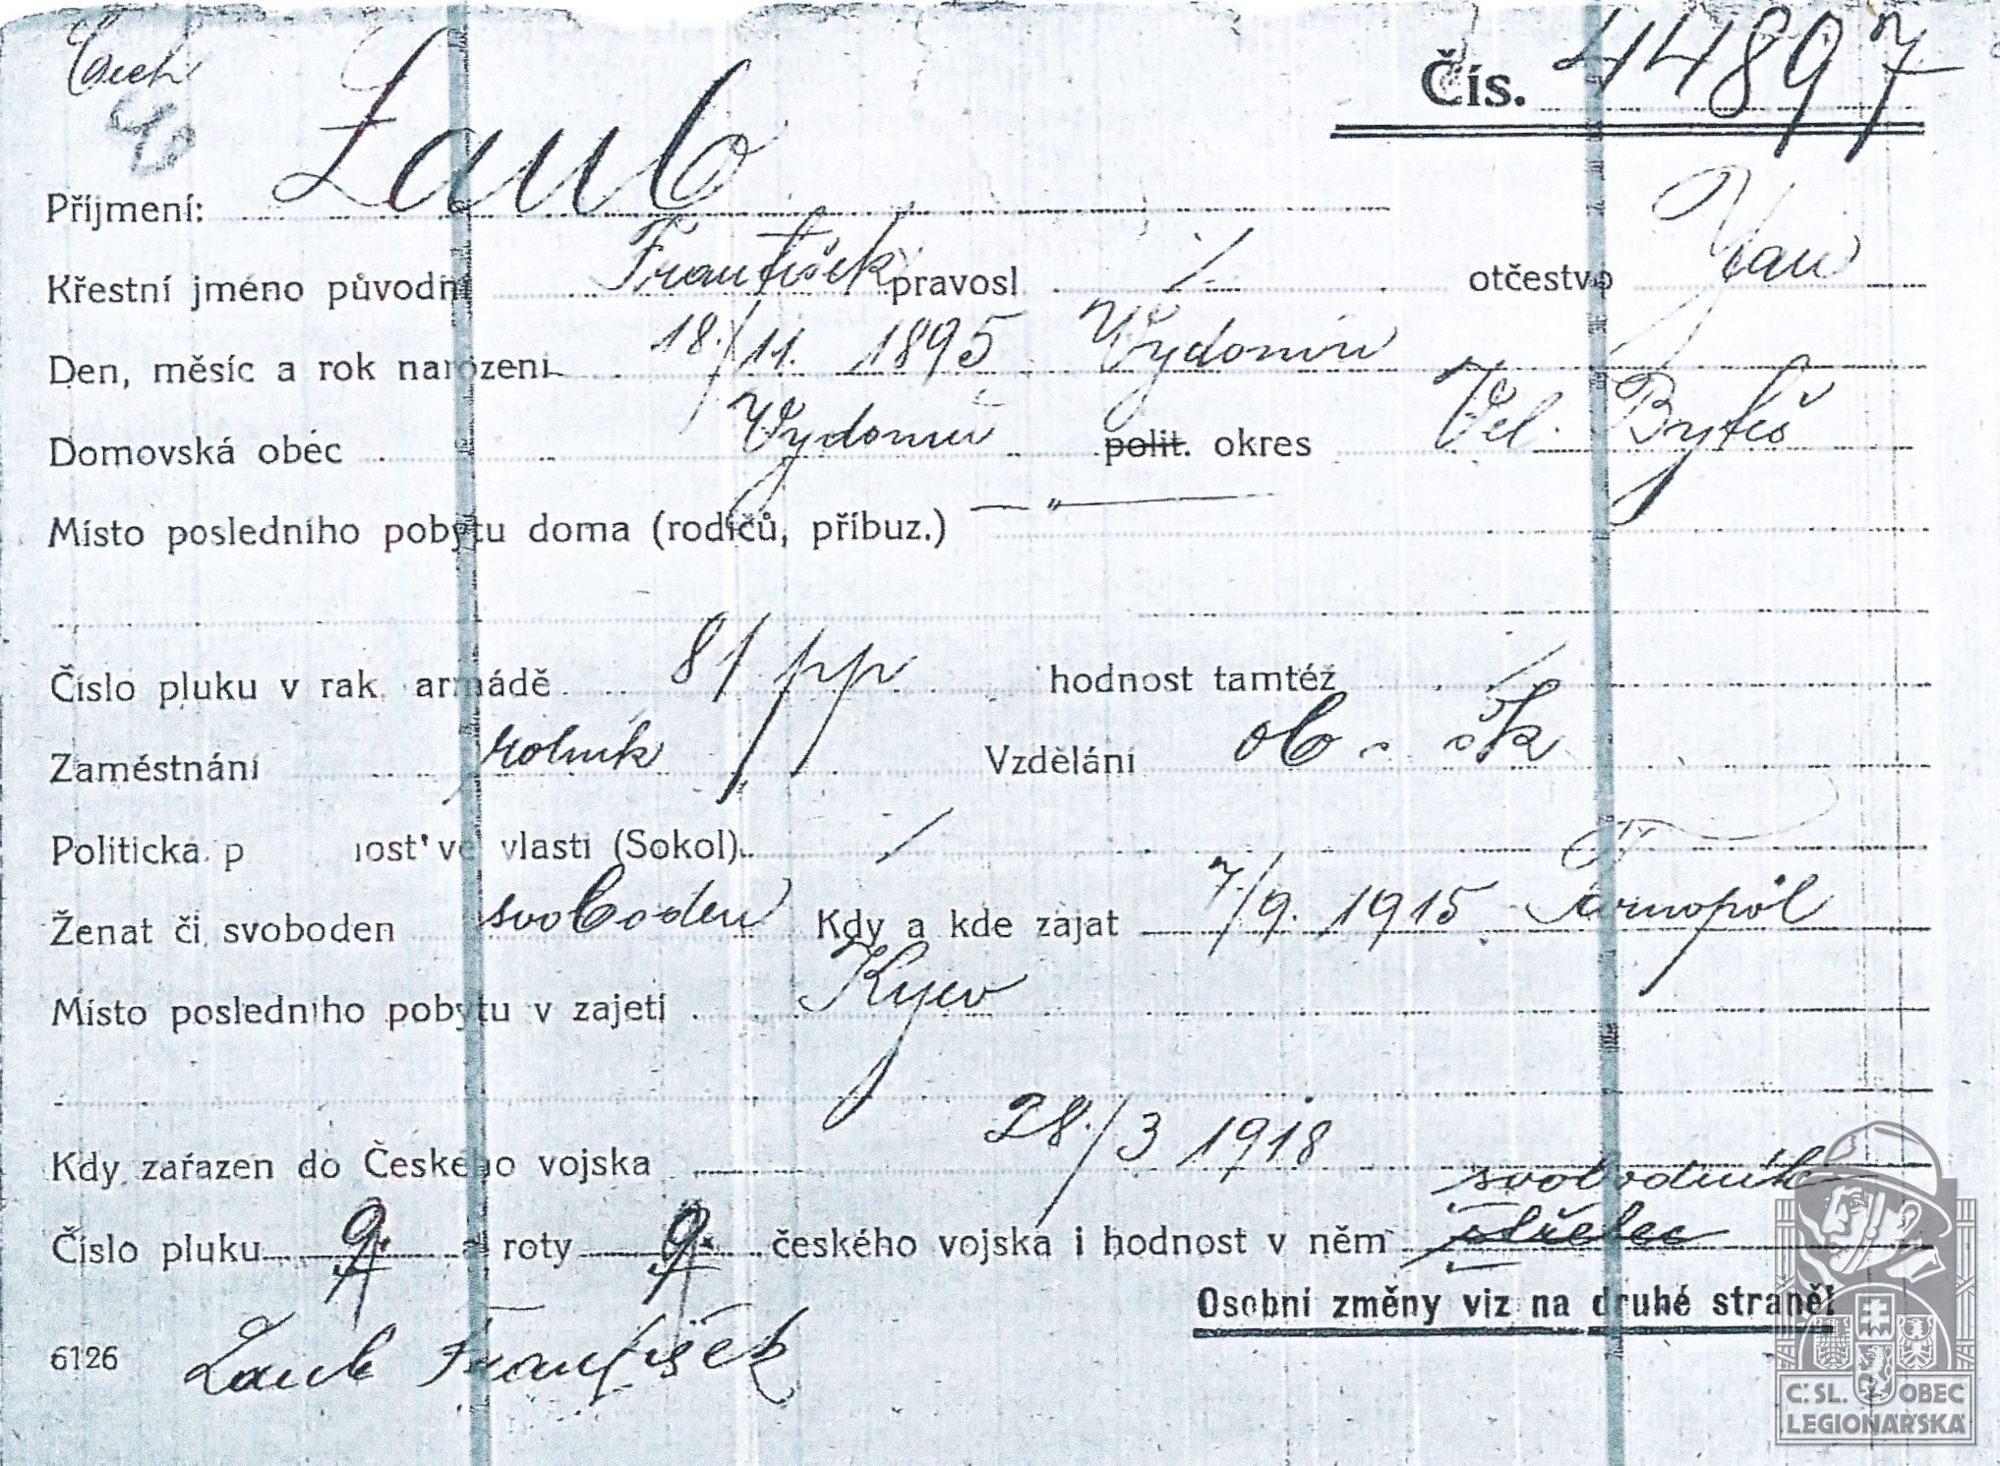 Čech
Čís. 44897
Příjmení: Laub
Křestní jméno původní František pravosl / otčestvo Jan
Den, měsíc a rok narození 18./11. 1895 Vydomin
Domovská obec Vydomin polit. okres Vel. Byteš
Místo posledního pobytu doma (rodičů, příbuz.) — " —
Číslo pluku v rak. armádě 81/pp hodnost tamtéž /
Zaměstnání rolník Vzdělání ob. šk
Politická p nost' ve vlasti (Sokol) /
Ženat či svoboden svoboden Kdy a kde zajat 7./9. 1915 Tarnopol
Místo posledního pobytu v zajetí Kyjev
Kdy zařazen do Českého vojska 28./3 1918
svobodník
Číslo pluku 9. a roty 9. českého vojska i hodnost v něm střelec
Osobní změny viz na druhé straně!
6126 Laub František
Č. SL. OBEC
LEGIONÁŘSKÁ